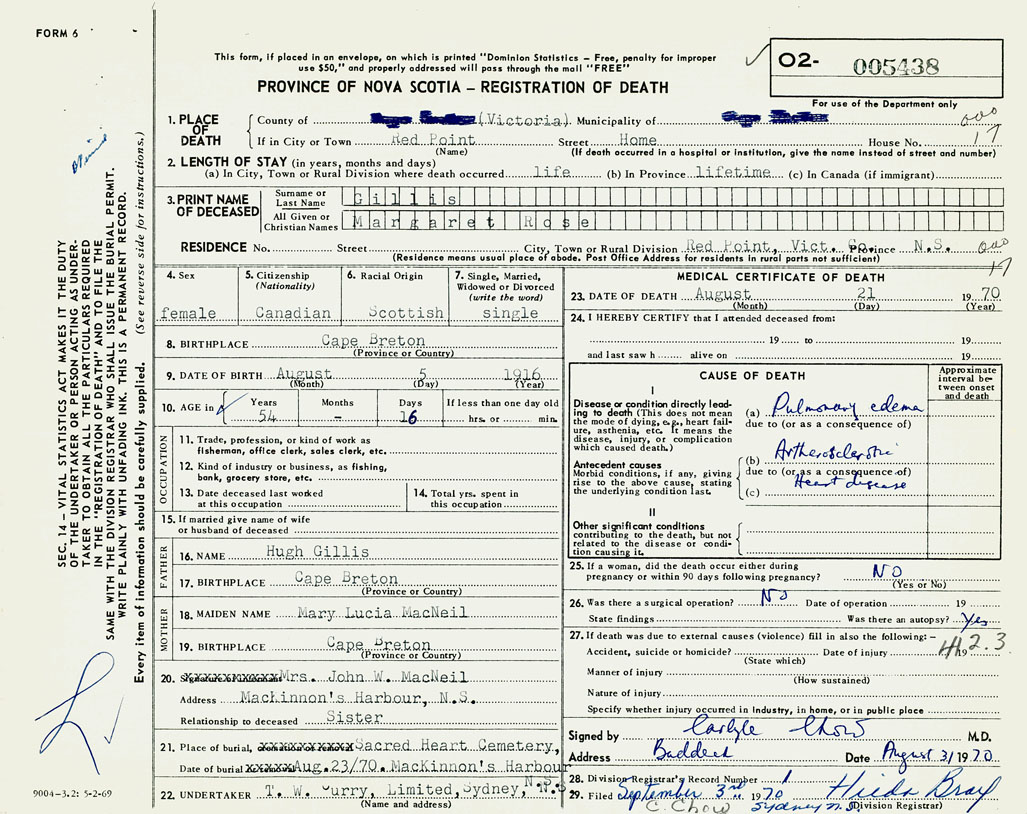 FORM 6
This form, if placed in an envelope, on which is printed "Dominion Statistics – Free, penalty for improper
use $50," and properly addressed will pass through the mail "FREE"
O2- 005438
PROVINCE OF NOVA SCOTIA – REGISTRATION OF DEATH
For use of the Department only
1. PLACE OF DEATH
County of (Victoria) Municipality of 000
If in City or Town Red Point Street Home House No. 17
(Name) (If death occurred in a hospital or institution, give the name instead of street and number)
2. LENGTH OF STAY (in years, months and days)
(a) In City, Town or Rural Division where death occurred life (b) In Province lifetime (c) In Canada (if immigrant)
3. PRINT NAME OF DECEASED
Surname or Last Name Gillis
All Given or Christian Names Margaret Rose
RESIDENCE No. Street City, Town or Rural Division Red Point, Vict. Co. Province N.S. 000
(Residence means usual place of abode. Post Office Address for residents in rural parts not sufficient) 17
4. Sex
female
5. Citizenship
(Nationality)
Canadian
6. Racial Origin
Scottish
7. Single, Married,
Widowed or Divorced
(write the word)
single
8. BIRTHPLACE Cape Breton
(Province or Country)
9. DATE OF BIRTH August 5 1916
(Month) (Day) (Year)
10. AGE in Years Months Days If less than one day old
54 – 16 hrs. or min.
OCCUPATION
11. Trade, profession, or kind of work as
fisherman, office clerk, sales clerk, etc.
12. Kind of industry or business, as fishing,
bank, grocery store, etc.
13. Date deceased last worked
at this occupation
14. Total yrs. spent in
this occupation
15. If married give name of wife
or husband of deceased
FATHER
16. NAME Hugh Gillis
17. BIRTHPLACE Cape Breton
(Province or Country)
MOTHER
18. MAIDEN NAME Mary Lucia MacNeil
19. BIRTHPLACE Cape Breton
(Province or Country)
20. Mrs. John W. MacNeil
Address MacKinnon's Harbour, N.S.
Relationship to deceased Sister
21. Place of burial, Sacred Heart Cemetery,
Date of burial Aug. 23/70. MacKinnon's Harbour
N.S.
22. UNDERTAKER T. W. Curry, Limited, Sydney, N.S.
(Name and address)
MEDICAL CERTIFICATE OF DEATH
23. DATE OF DEATH August 21 1970
(Month) (Day) (Year)
24. I HEREBY CERTIFY that I attended deceased from:
19 to 19
and last saw h alive on 19
CAUSE OF DEATH
Approximate
interval be-
tween onset
and death
I
Disease or condition directly lead-
ing to death (This does not mean
the mode of dying, e.g., heart fail-
ure, asthenia, etc. It means the
disease, injury, or complication
which caused death.)
(a) Pulmonary edema
due to (or as a consequence of)
Antecedent causes
Morbid conditions, if any, giving
rise to the above cause, stating
the underlying condition last.
(b) Artherosclerotic
due to (or as a consequence of)
Heart disease
(c)
II
Other significant conditions
contributing to the death, but not
related to the disease or condi-
tion causing it.
25. If a woman, did the death occur either during
pregnancy or within 90 days following pregnancy? NO
(Yes or No)
26. Was there a surgical operation? No Date of operation 19
State findings Was there an autopsy? Yes
27. If death was due to external causes (violence) fill in also the following:–
Accident, suicide or homicide? Date of injury 19
(State which)
Manner of injury
(How sustained)
Nature of injury
Specify whether injury occurred in industry, in home, or in public place
Signed by Carlyle Chow M.D.
Address Baddeck Date August 31 1970
28. Division Registrar's Record Number 1
29. Filed September 3rd 1970 Hilda Bray
C. Chow Sydney N.S. (Division Registrar)
SEC. 14 – VITAL STATISTICS ACT MAKES IT THE DUTY
OF THE UNDERTAKER OR PERSON ACTING AS UNDER-
TAKER TO OBTAIN ALL THE PARTICULARS REQUIRED
IN THE "REGISTRATION OF DEATH" AND TO FILE THE
SAME WITH THE DIVISION REGISTRAR WHO SHALL ISSUE THE BURIAL PERMIT.
WRITE PLAINLY WITH UNFADING INK. THIS IS A PERMANENT RECORD.
Every item of information should be carefully supplied. (See reverse side for instructions.)
9004-3.2: 5-2-69